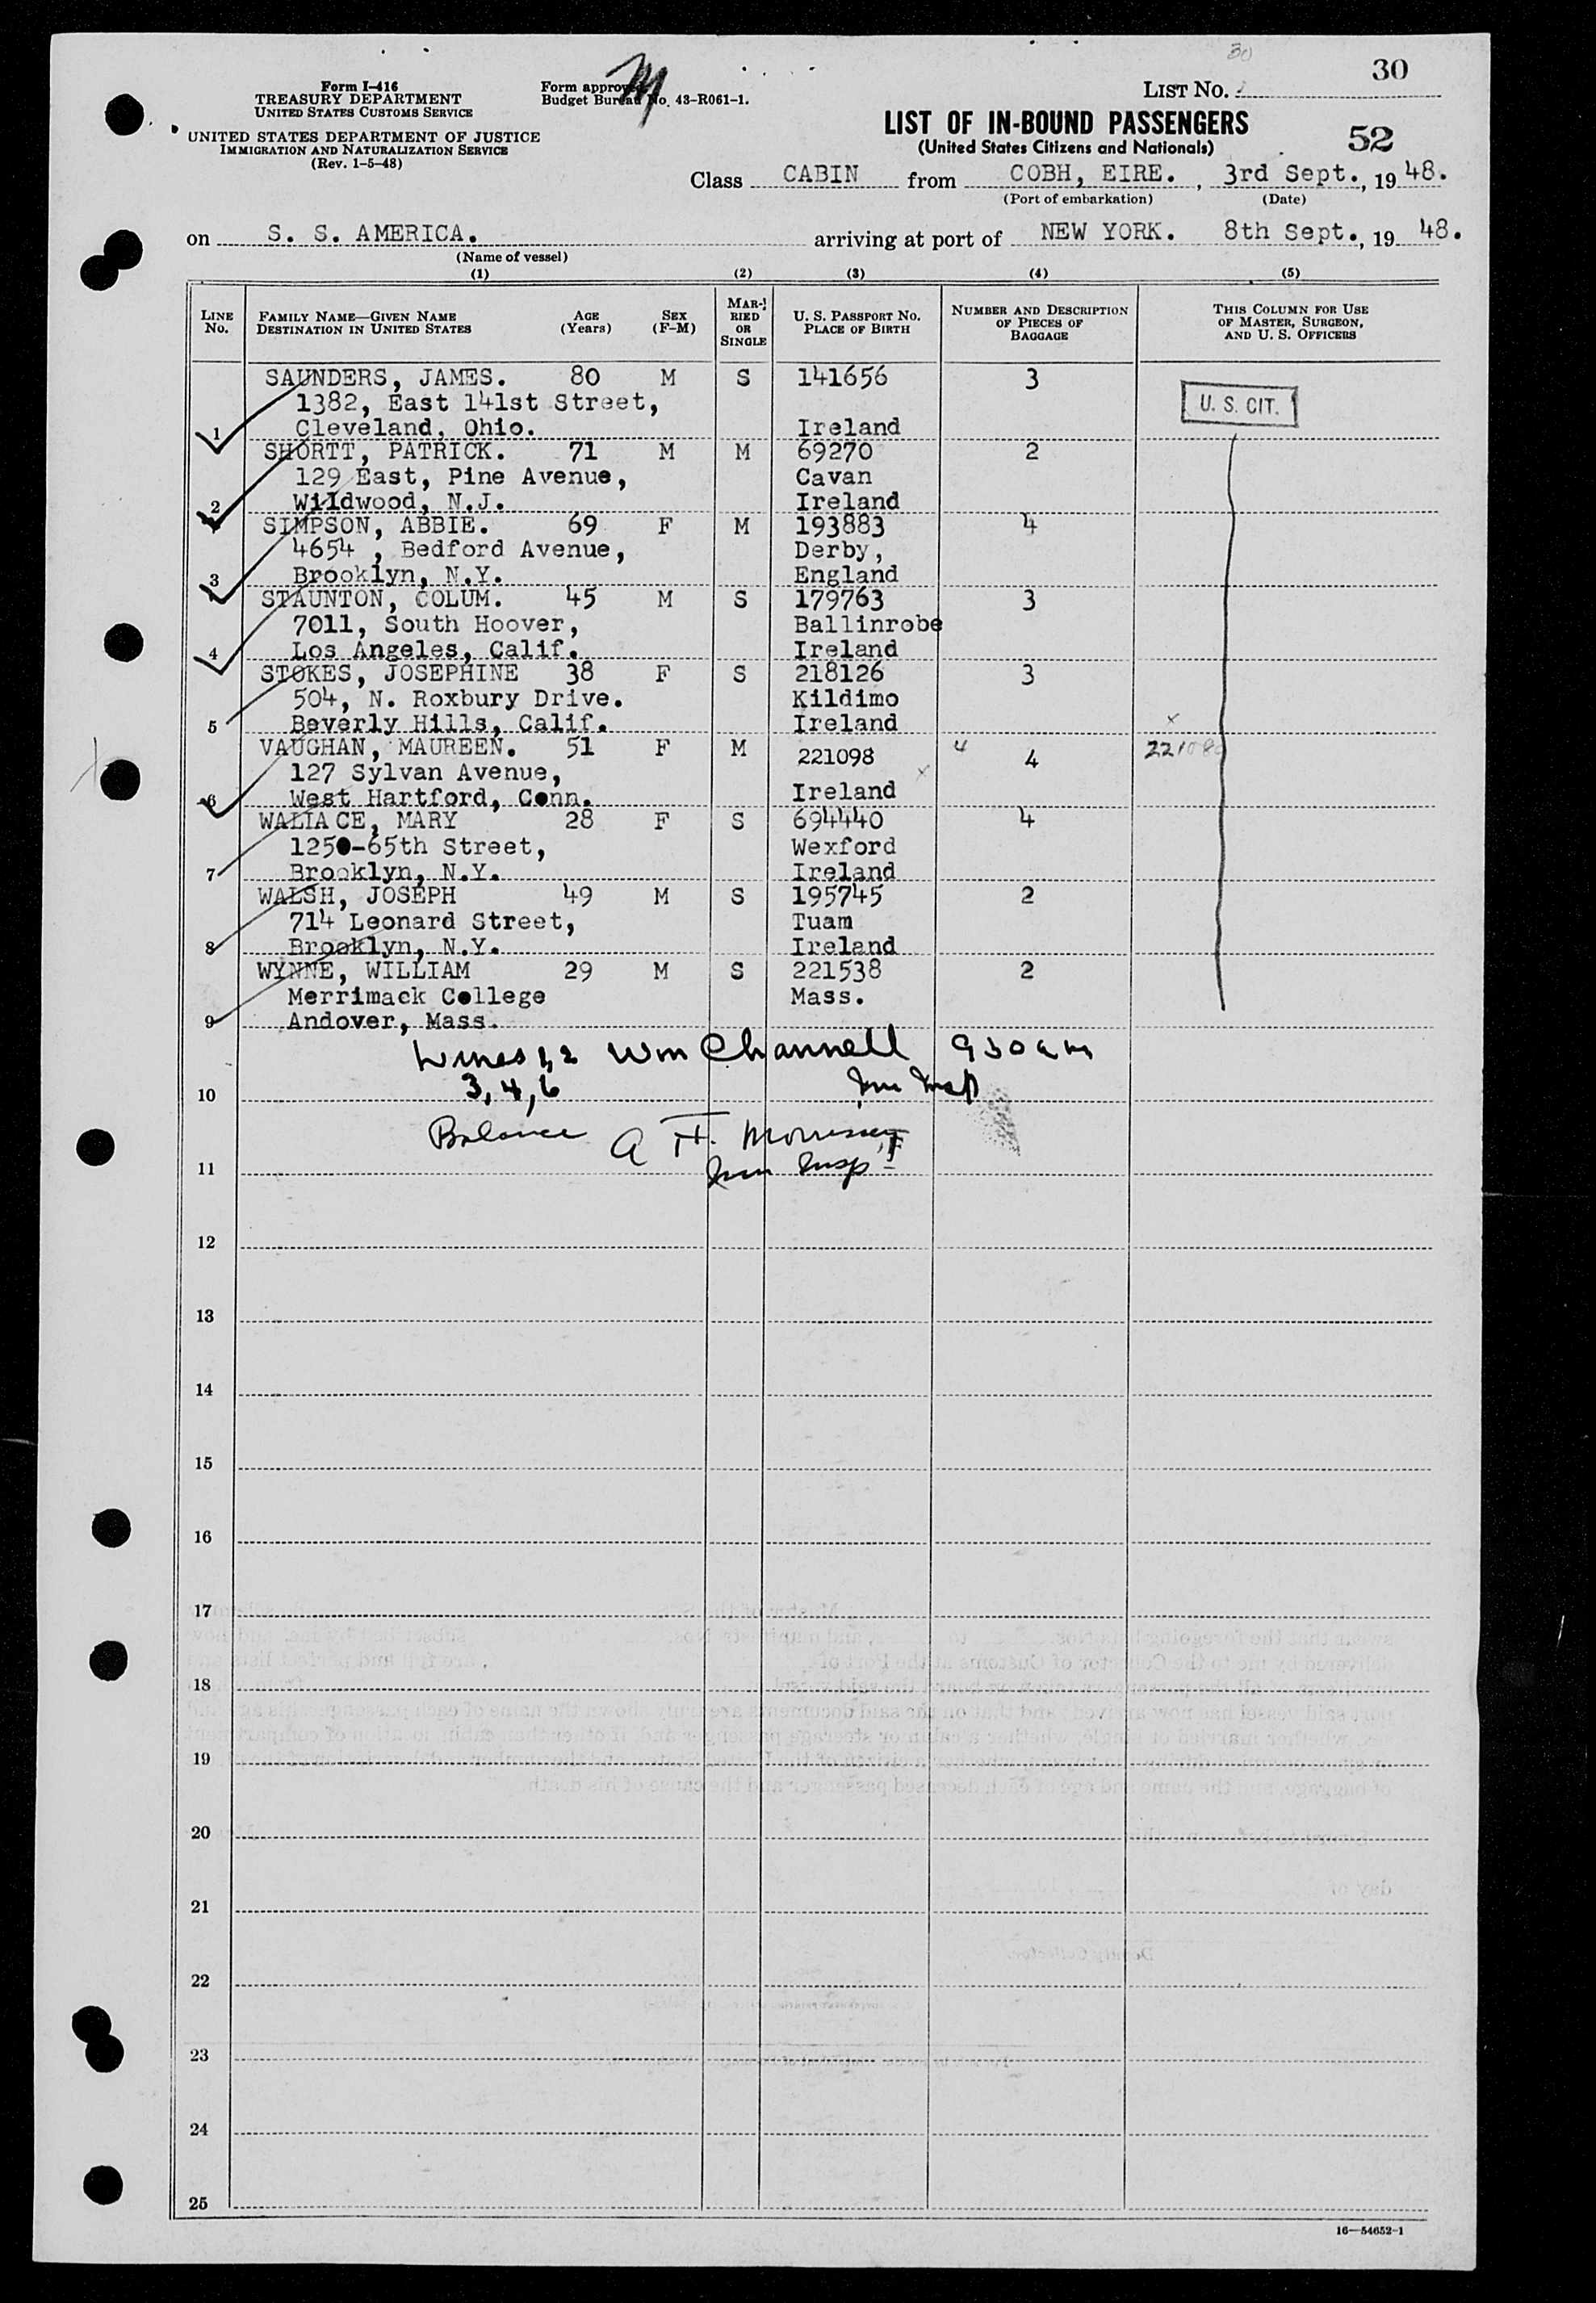 30
30
Form I-416
TREASURY DEPARTMENT
UNITED STATES CUSTOMS SERVICE
Form approved
Budget Bureau No. 43-R061-1.
LIST NO.
UNITED STATES DEPARTMENT OF JUSTICE
IMMIGRATION AND NATURALIZATION SERVICE
(Rev. 1-5-48)
LIST OF IN-BOUND PASSENGERS
(United States Citizens and Nationals)
52
Class CABIN from COBH, EIRE. , 3rd Sept., 19 48.
(Port of embarkation) (Date)
on S. S. AMERICA. arriving at port of NEW YORK. 8th Sept., 19 48.
(Name of vessel)
(1) (2) (3) (4) (5)
LINE No. FAMILY NAME—GIVEN NAME DESTINATION IN UNITED STATES AGE (Years) SEX (F-M) MARRIED OR SINGLE U. S. PASSPORT NO. PLACE OF BIRTH NUMBER AND DESCRIPTION OF PIECES OF BAGGAGE THIS COLUMN FOR USE OF MASTER, SURGEON, AND U. S. OFFICERS
SAUNDERS, JAMES. 80 M S 141656 3
1382, East 141st Street, U. S. CIT.
1 Cleveland, Ohio. Ireland
SHORTT, PATRICK. 71 M M 69270 2
129 East, Pine Avenue, Cavan
2 Wildwood, N.J. Ireland
SIMPSON, ABBIE. 69 F M 193883 4
4654 , Bedford Avenue, Derby,
3 Brooklyn, N.Y. England
STAUNTON, COLUM. 45 M S 179763 3
7011, South Hoover, Ballinrobe
4 Los Angeles, Calif. Ireland
STOKES, JOSEPHINE 38 F S 218126 3
504, N. Roxbury Drive. Kildimo
5 Beverly Hills, Calif. Ireland
VAUGHAN, MAUREEN. 51 F M 221098 4 4
127 Sylvan Avenue,
6 West Hartford, Conn. Ireland
WALLACE, MARY 28 F S 694440 4
1250-65th Street, Wexford
7 Brooklyn, N.Y. Ireland
WALSH, JOSEPH 49 M S 195745 2
714 Leonard Street, Tuam
8 Brooklyn, N.Y. Ireland
WYNNE, WILLIAM 29 M S 221538 2
Merrimack College Mass.
9 Andover, Mass.
Lines 1, 2 Wm Channell 930 am
10 3, 4, 6 Imm Insp
Balance A H. Morrissey
11 Imm Insp
12
13
14
15
16
17
18
19
20
21
22
23
24
25
16—54652-1